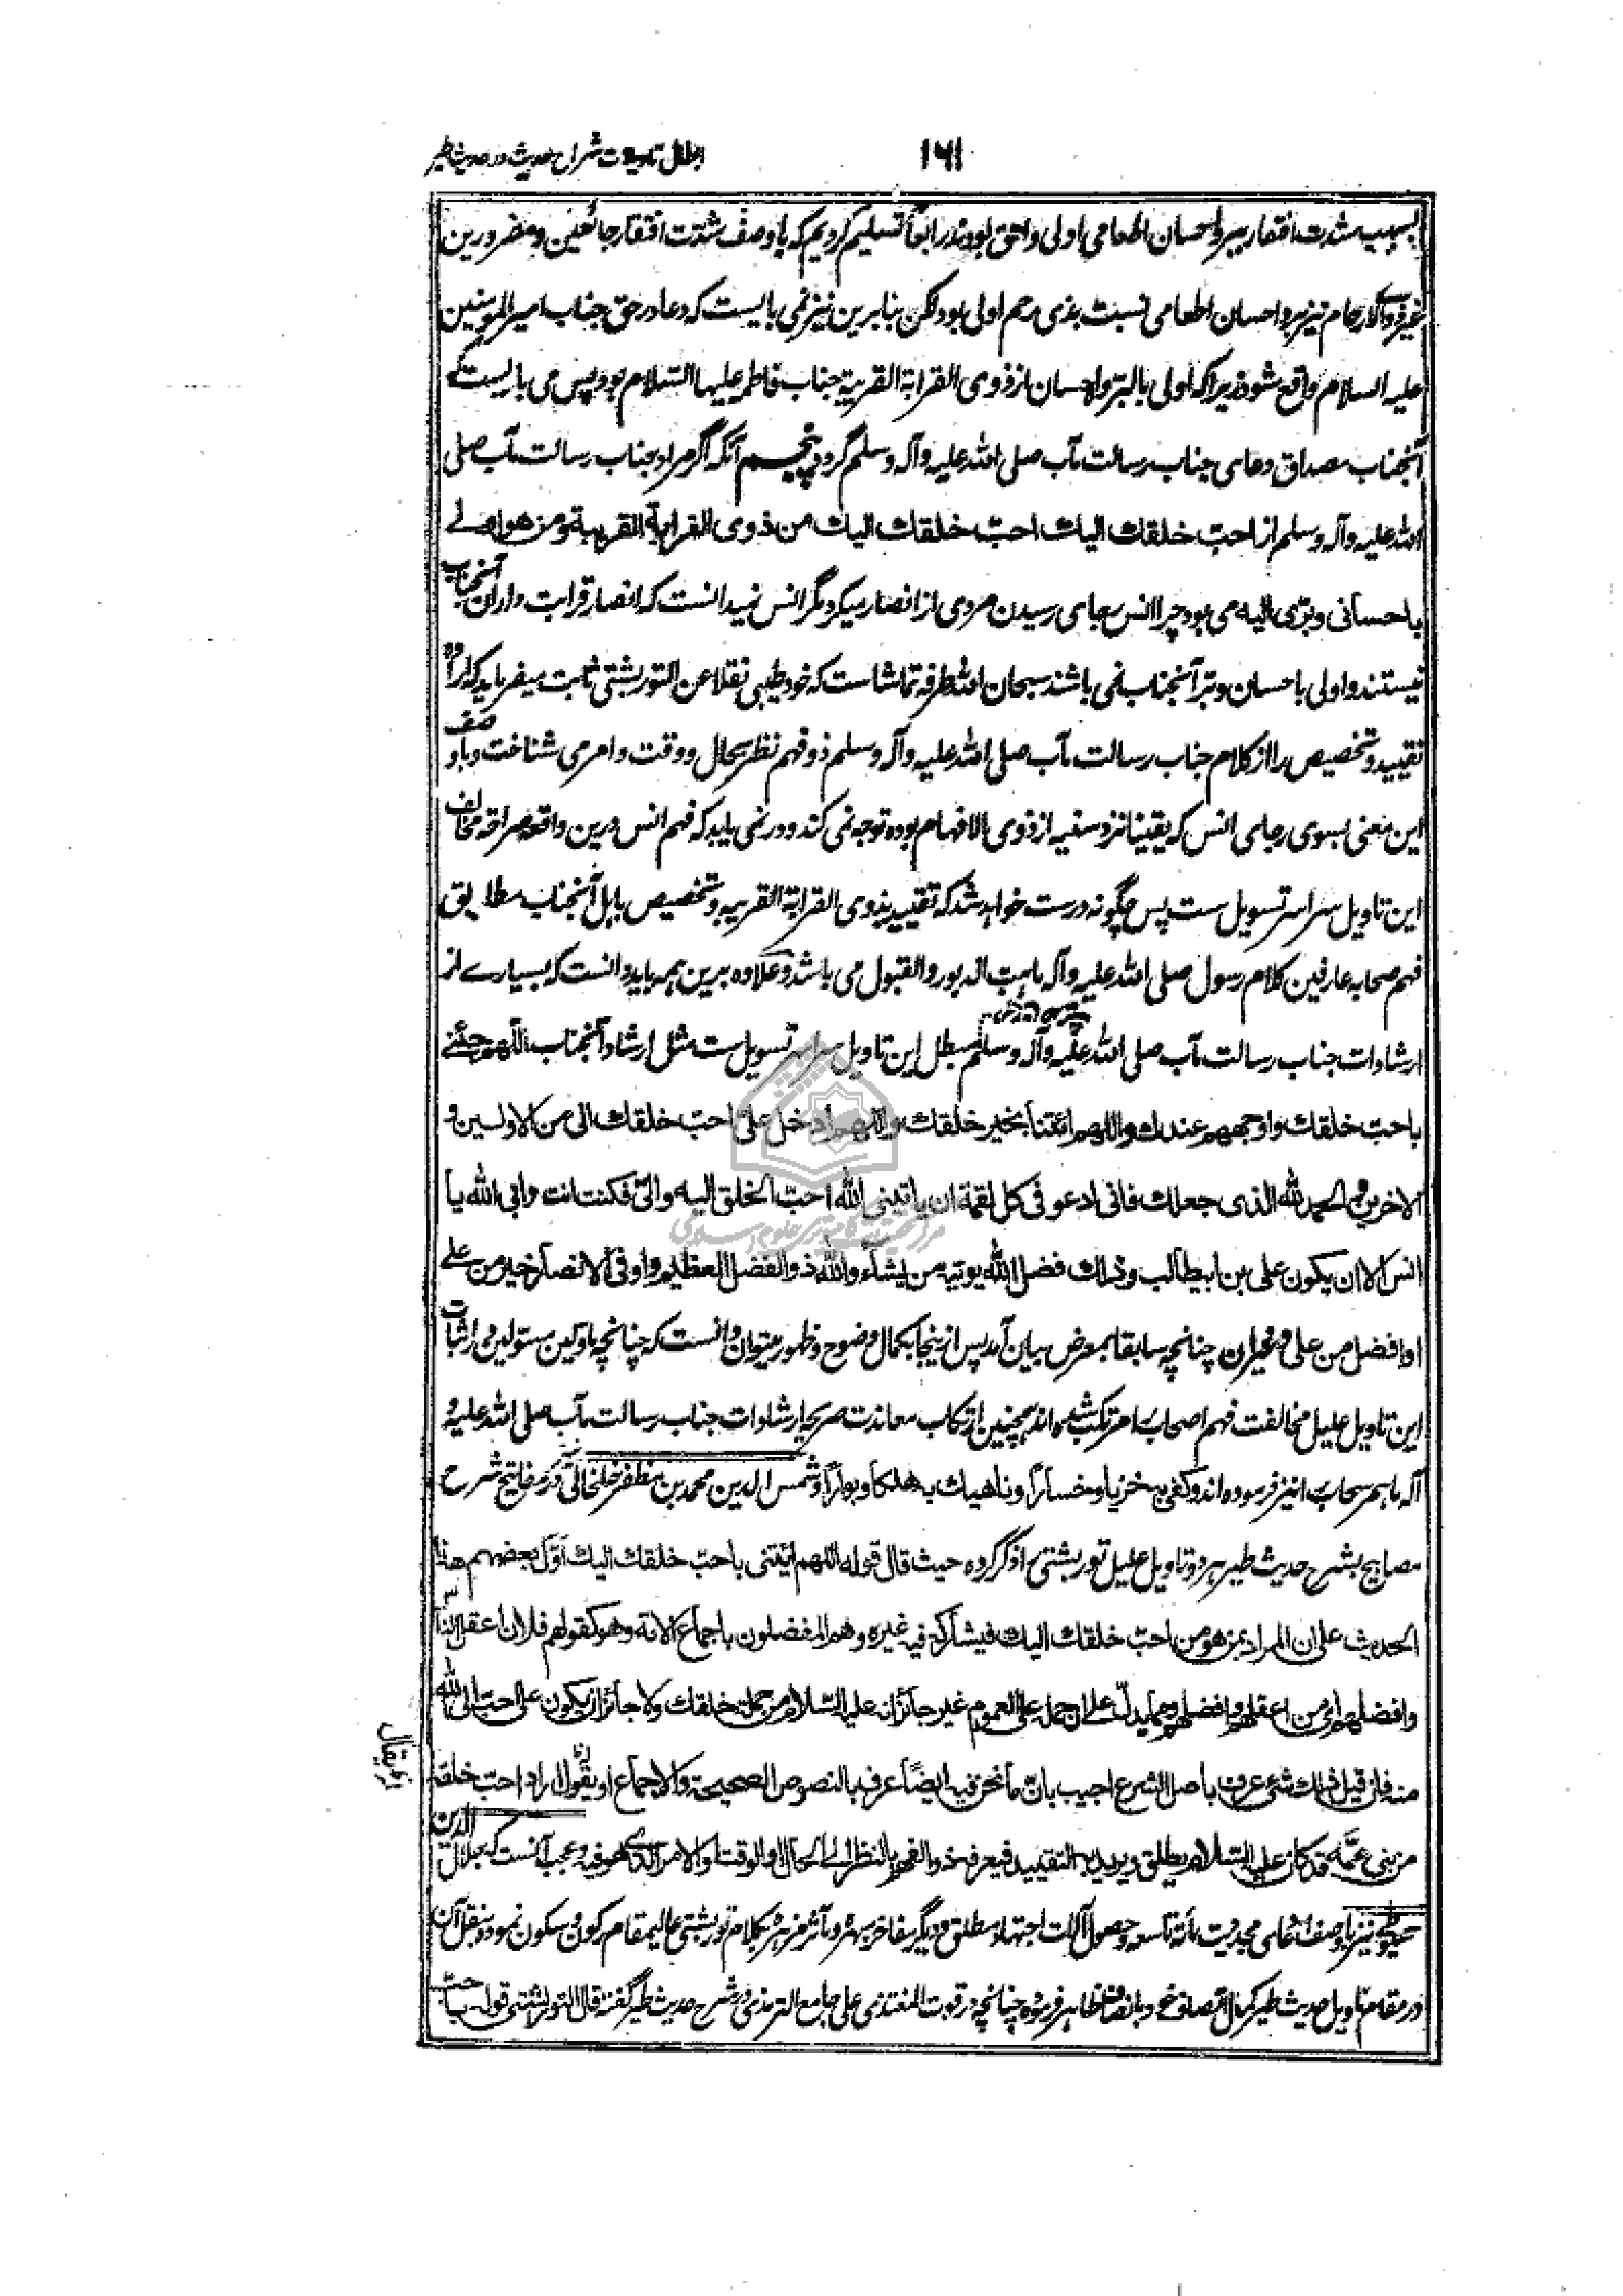 ۱۶۱
ابطال تاویلات شراح حدیث در حدیث طیر
بسبب شدت افتقار ببر و احسان اطعامی اولی و احق بودند رابعا تسلیم کردیم که با وصف شدت افتقار جائعین و مضرورین
غیر ذوی الارحام نیز بر و احسان اطعامی نسبت بذی رحم اولی بود لکن بنابرین نیز نمی بایست که دعا در حق جناب امیر المومنین
علیه السلام واقع شود زیرا که اولی بالبر و الاحسان از ذوی القرابة القریبة جناب فاطمه علیها السلام بود پس می بایست که
آنجناب مصداق دعای جناب رسالت مآب صلی الله علیه وآله وسلم گردد پنجم آنکه اگر مراد جناب رسالت مآب صلی
الله علیه وآله وسلم از احب خلقك الیك احب خلقك الیك من ذوی القرابة القریبة و من هو اولی
باحسانی و برّی الیه می بود چرا انس رجای رسیدن مردی از انصار میکرد مگر انس نمیدانست که انصار قرابت داران آنجناب
نیستند و اولی باحسان و بر آنجناب نمی باشند سبحان الله طرفه تماشاست که خود طیبی نقلا عن التوربشتی ثابت میفرماید که اراده
تقیید و تخصیص را از کلام جناب رسالت مآب صلی الله علیه وآله وسلم ذو فهم نظر بحال و وقت و امری شناخت و با وصف
این معنی بسوی رجای انس که یقینا نزد سنیه از ذوی الافهام بوده توجه نمی کند و در نمی یابد که فهم انس درین واقعه صراحة مخالف
این تاویل سراسر تسویل ست پس چگونه درست خواهد شد که تقیید بذوی القرابة القریبه و تخصیص باهل آنجناب مطابق
فهم صحابه عارفین کلام رسول صلی الله علیه وآله ما هبت الدبور والقبول می باشد و علاوه برین همه باید دانست که بسیارے از
ارشادات جناب رسالت مآب صلی الله علیه وآله وسلم مبطل این تاویل سراسر تسویل ست مثل ارشاد آنجناب اللهم جئنی
باحب خلقك و اوجههم عندك و اللهم ائتنا بخیر خلقك و اللهم ادخل علیّ احب خلقك الی من الاولین و
الاخرین و الحمد لله الذی جعلك فانی ادعو فی كل لقمة ان یاتینی الله احب الخلق الیه والیّ فكنت انت و ابی الله یا
انس الا ان یكون علی بن ابیطالب و ذلك فضل الله یوتیه من یشاء والله ذو الفضل العظیم و اوفی الانصار خیر من علی
او افضل من علی و غیر ان چنانچه سابقا بمعرض بیان آمد پس ازینجا بکمال وضوح و ظهور میتوان دانست که چنانچه ماولین مسولین در اثبات
این تاویل علیل مخالفت فهم اصحاب را مرتکب شده اند همچنین ارتکاب معاندت صریح ارشادات جناب رسالت مآب صلی الله علیه و
آله ما همر سحاب را نیز فرموده اند و کفی به خزیا و خسارا و ناهیك به هلكا و بوارا و شمس الدین محمد بن مظفر خلخالی در مفاتیح شرح
مصابیح بشرح حدیث طیر هر دو تاویل علیل توربشتی را ذکر کرده حیث قال قوله اللهم ائتنی باحب خلقك الیك اوّل بعضهم هذا
الحدیث علی ان المراد بمن هو من احب خلقك الیك فیشاركه فیه غیره وهم المفضلون باجماع الامة وهو كقولهم فلان اعقل الناس
وافضلهم ای من اعقلهم وافضلهم ومما یدلّ علی ان حمله علی العموم غیر جائز انه علیه السلام من جملة خلقك ولا جائز ان یكون علی احب الی الله
منه فان قیل ذلك شئ عرف باصل الشرع اجیب بانّ ما نحن فیه ایضاً عرف بالنصوص الصحیحة والاجماع او یقال اراد احب خلقه
من بنی عمّه قد كان علیه السلام یطلق ویرید به التقیید فیعرفه ذو الفهم بالنظر الی الحال او الوقت او الامر الذی هو فیه و عجب آنست که جلال الدین
سیوطی نیز با وصف ادعای مجددیت مأته تاسعه و حصول آلات اجتهاد مطلق و دیگر مفاخر و مآثر بکلام توربشتی عالیمقام رکون و سکون نموده بنقل آن
در مقام تاویل حدیث طیر کمال ظاهر فرموده چنانچه در قوت المغتذی علی جامع الترمذی در شرح حدیث طیر گفته قال التوربشتی قوله باحب